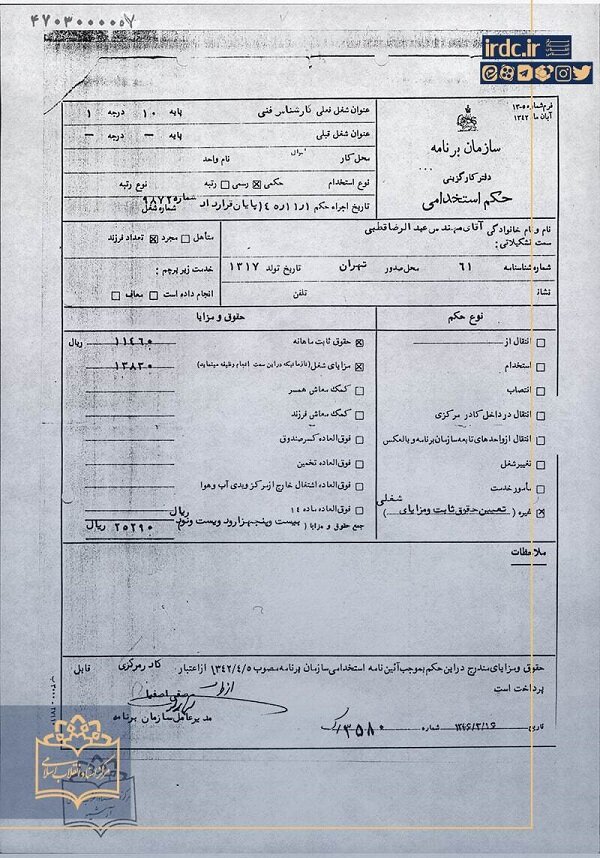 ۴۷۰۳۰۰۰۰۰۷
irdc.ir
فرم شماره ۵-۱۳
آبان ماه ۱۳۴۲
سازمان برنامه
دفتر کارگزینی
حکم استخدامی
عنوان شغل فعلی کارشناس فنی پایه ۱۰ درجه ۱
عنوان شغل قبلی پایه — درجه —
محل کار نام واحد
نوع استخدام حکمی رسمی رتبه نوع رتبه
تاریخ اجراء حکم ۴۵/۱۱/۱ (پایان قرارداد شماره ۹۸۷۲ شماره شغل
نام و نام خانوادگی آقای مهندس عبدالرضا قطبی
سمت تشکیلاتی:
متأهل مجرد تعداد فرزند
شماره شناسنامه ۶۱ محل صدور تهران تاریخ تولد ۱۳۱۷
خدمت زیر پرچم:
نشانی تلفن
انجام داده است معاف
نوع حکم
انتقال از
استخدام
انتصاب
انتقال در داخل کادر مرکزی
انتقال از واحدهای تابعه سازمان برنامه و بالعکس
تغییر شغل
مأمور خدمت
غیره (تعیین حقوق ثابت و مزایای شغلی)
حقوق و مزایا
حقوق ثابت ماهانه ۱۱۴۶۰ ریال
مزایای شغل (تا زمانیکه در این سمت انجام وظیفه مینماید) ۱۳۸۳۰
کمک معاش همسر
کمک معاش فرزند
فوق العاده کسر صندوق
فوق العاده تضمین
فوق العاده اشتغال خارج از مرکز و بدی آب و هوا
فوق العاده ماده ۱۴
جمع حقوق و مزایا (بیست و پنجهزار و دویست و نود ریال ۲۵۲۹۰ ریال
ملاحظات
حقوق و مزایای مندرج در این حکم بموجب آئین نامه استخدامی سازمان برنامه مصوب ۱۳۴۲/۴/۵ از اعتبار کادر مرکزی قابل
پرداخت است
از طرف صفی اصفیا
مدیر عامل سازمان برنامه
تاریخ ۱۳۴۶/۳/۱۶ شماره ۳۵۸۰/
مرکز اسناد انقلاب اسلامی